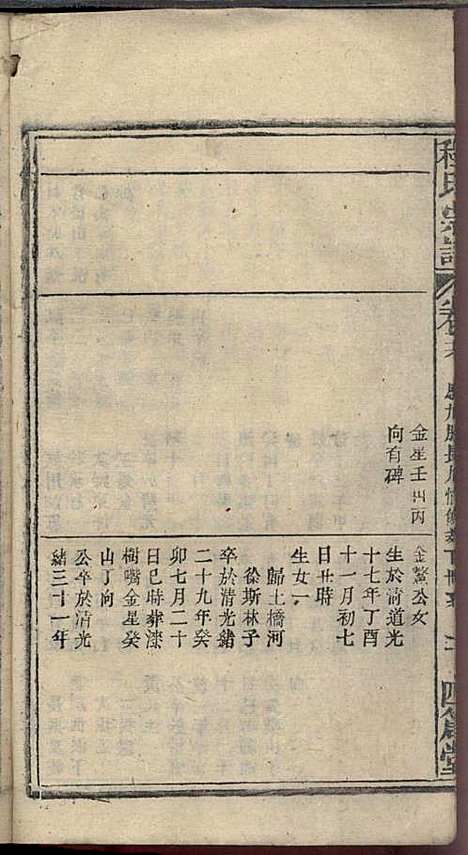 程氏宗譜
卷
四箴堂
金星壬山丙
向有碑
金鰲公女
生於清道光
十七年丁酉
十一月初七
日丑時
生女一
歸土橋河
徐斯林子
卒於清光緒
二十九年癸
卯七月二十
日巳時葬漆
樹嘴金星癸
山丁向
公卒於清光
緒三十一年